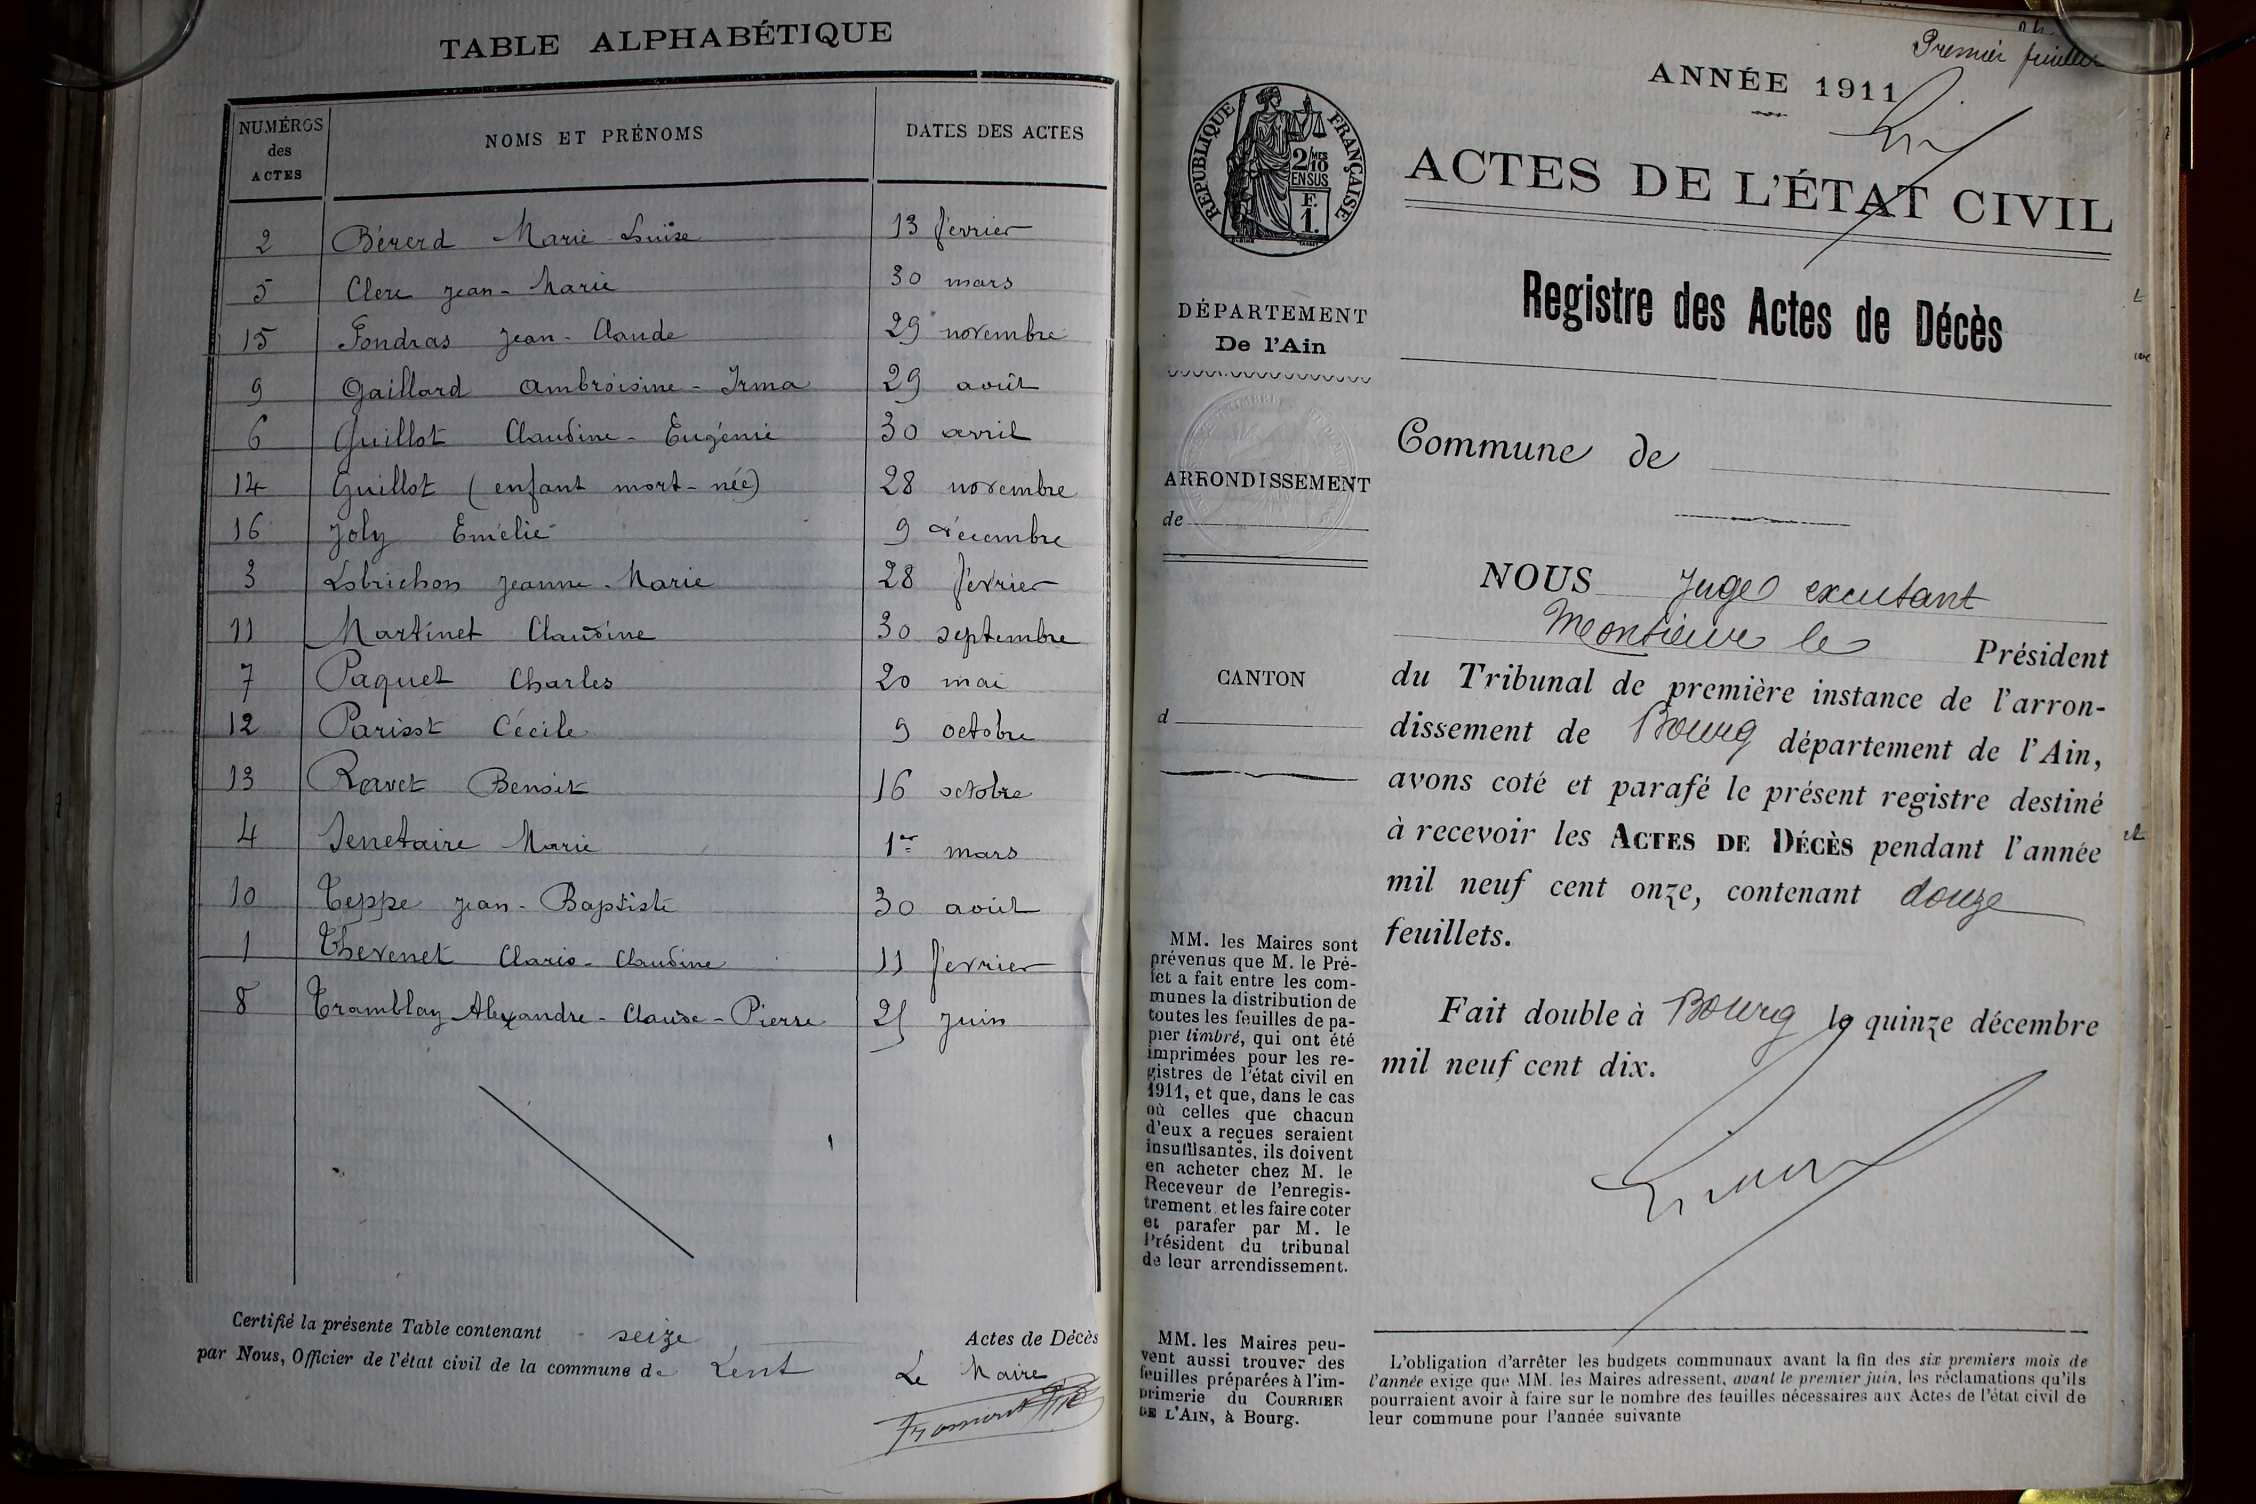 TABLE ALPHABÉTIQUE
NUMÉROS des ACTES | NOMS ET PRÉNOMS | DATES DES ACTES
2 Béverd Marie-Luise 13 février
5 Clerc Jean-Marie 30 mars
15 Fondras Jean-Claude 29 novembre
9 Gaillard Ambroisine-Irma 29 août
6 Guillot Claudine-Eugénie 30 avril
14 Guillot (enfant mort-née) 28 novembre
16 Joly Emélie 9 décembre
3 Lobrichon Jeanne-Marie 28 février
11 Martinet Claudine 30 septembre
7 Paquet Charles 20 mai
12 Parisot Cécile 9 octobre
13 Ravet Benoit 16 octobre
4 Senetaire Marie 1er mars
10 Teppe Jean-Baptiste 30 août
1 Thevenet Claudine 11 février
8 Tramblay Alexandre-Claude-Pierre 25 juin
Certifié la présente Table contenant seize Actes de Décès
par Nous, Officier de l'état civil de la commune de Lent Le Maire
Premier feuillet
ANNÉE 1911
RÉPUBLIQUE FRANÇAISE
2/10 MES
EN SUS
F.
1.
ACTES DE L'ÉTAT CIVIL
Registre des Actes de Décès
DÉPARTEMENT
De l'Ain
Commune de
ARRONDISSEMENT
de
CANTON
d
NOUS Juge excutant
Monsieur le Président
du Tribunal de première instance de l'arron-
dissement de Bourg département de l'Ain,
avons coté et parafé le présent registre destiné
à recevoir les ACTES DE DÉCÈS pendant l'année
mil neuf cent onze, contenant douze
feuillets.
Fait double à Bourg le quinze décembre
mil neuf cent dix.
MM. les Maires sont
prévenus que M. le Pré-
fet a fait entre les com-
munes la distribution de
toutes les feuilles de pa-
pier timbré, qui ont été
imprimées pour les re-
gistres de l'état civil en
1911, et que, dans le cas
où celles que chacun
d'eux a reçues seraient
insuffisantes, ils doivent
en acheter chez M. le
Receveur de l'enregis-
trement et les faire coter
et parafer par M. le
Président du tribunal
de leur arrondissement.
MM. les Maires peu-
vent aussi trouver des
feuilles préparées à l'im-
primerie du COURRIER
DE L'AIN, à Bourg.
L'obligation d'arrêter les budgets communaux avant la fin des six premiers mois de
l'année exige que MM. les Maires adressent, avant le premier juin, les réclamations qu'ils
pourraient avoir à faire sur le nombre des feuilles nécessaires aux Actes de l'état civil de
leur commune pour l'année suivante